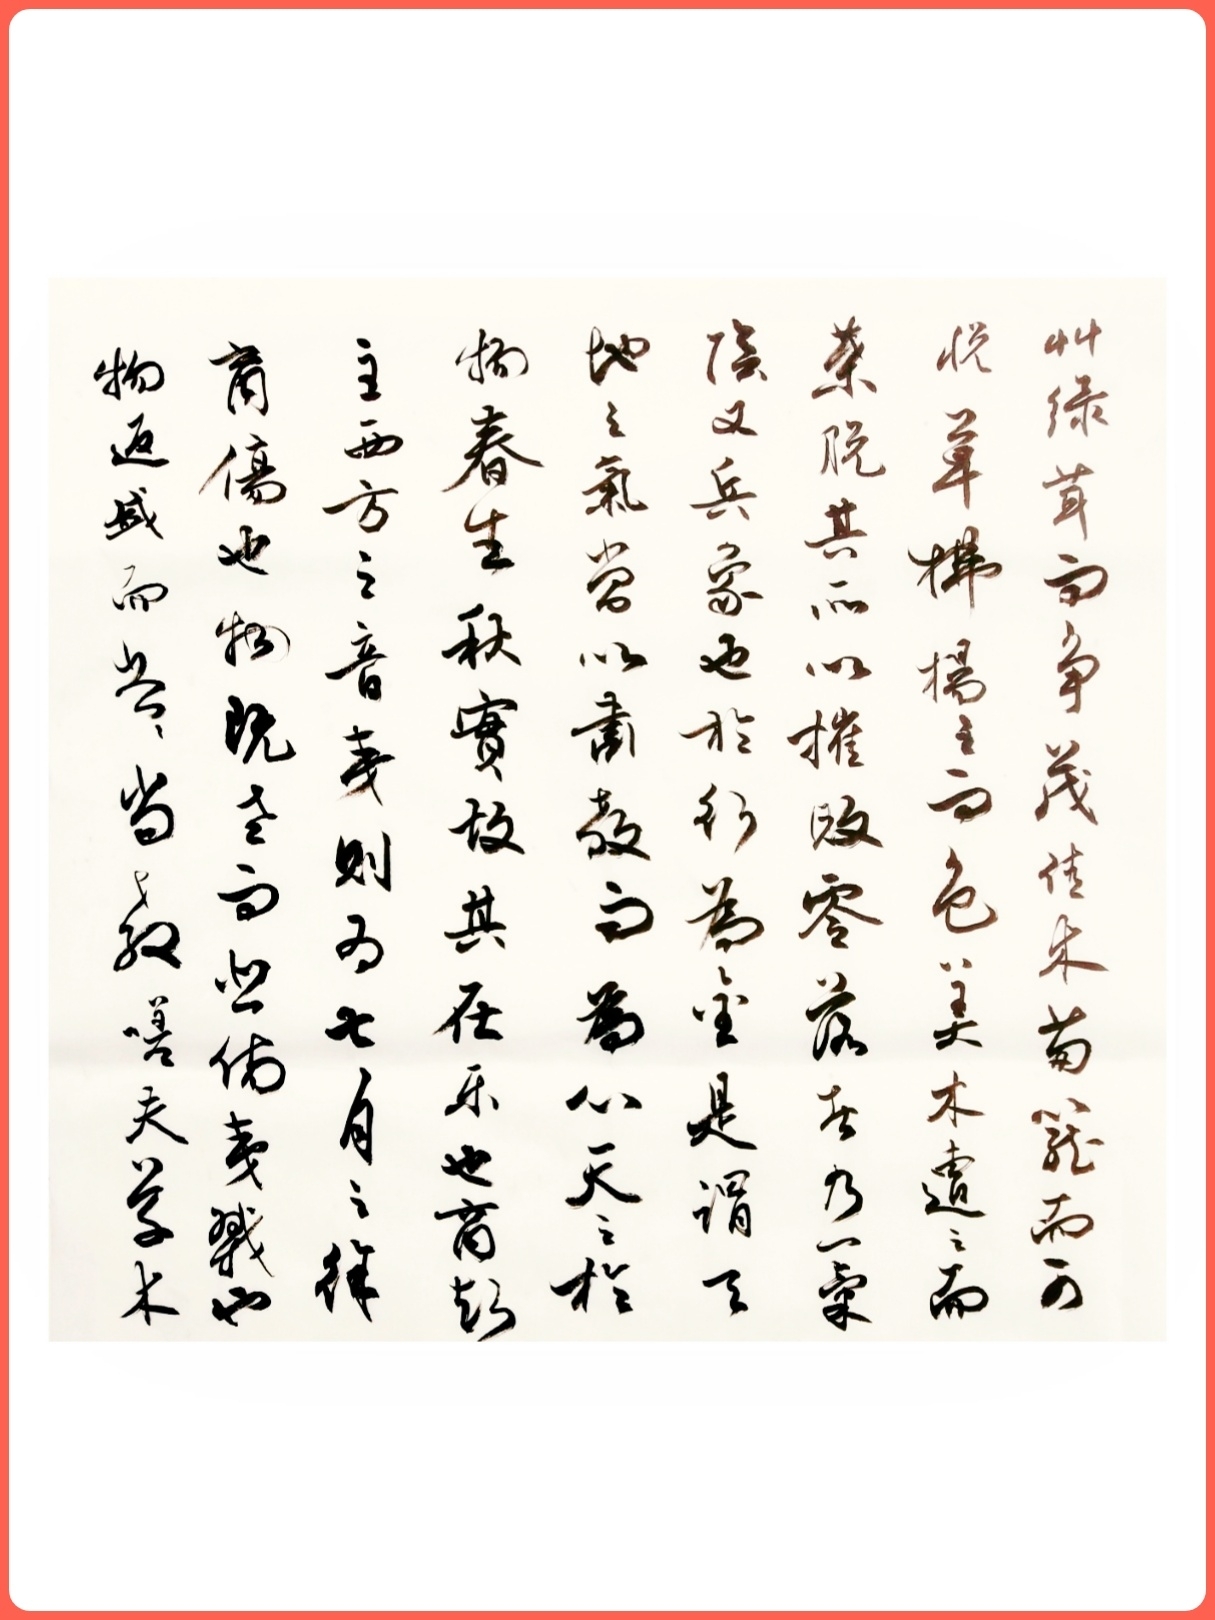 艸绿茸而争茂佳木葱蘢而可
悦草拂楊之而色美木遭之而
葉脱其所以摧敗零落者乃一氣
陰又兵象也於行為金是謂天
地之氣常以肅殺而為心天之於
物春生秋實故其在乐也商聲
主西方之音夷則为七月之律
商傷也物既老而悲傷夷戮也
物返盛而尽当殺嗟夫草木